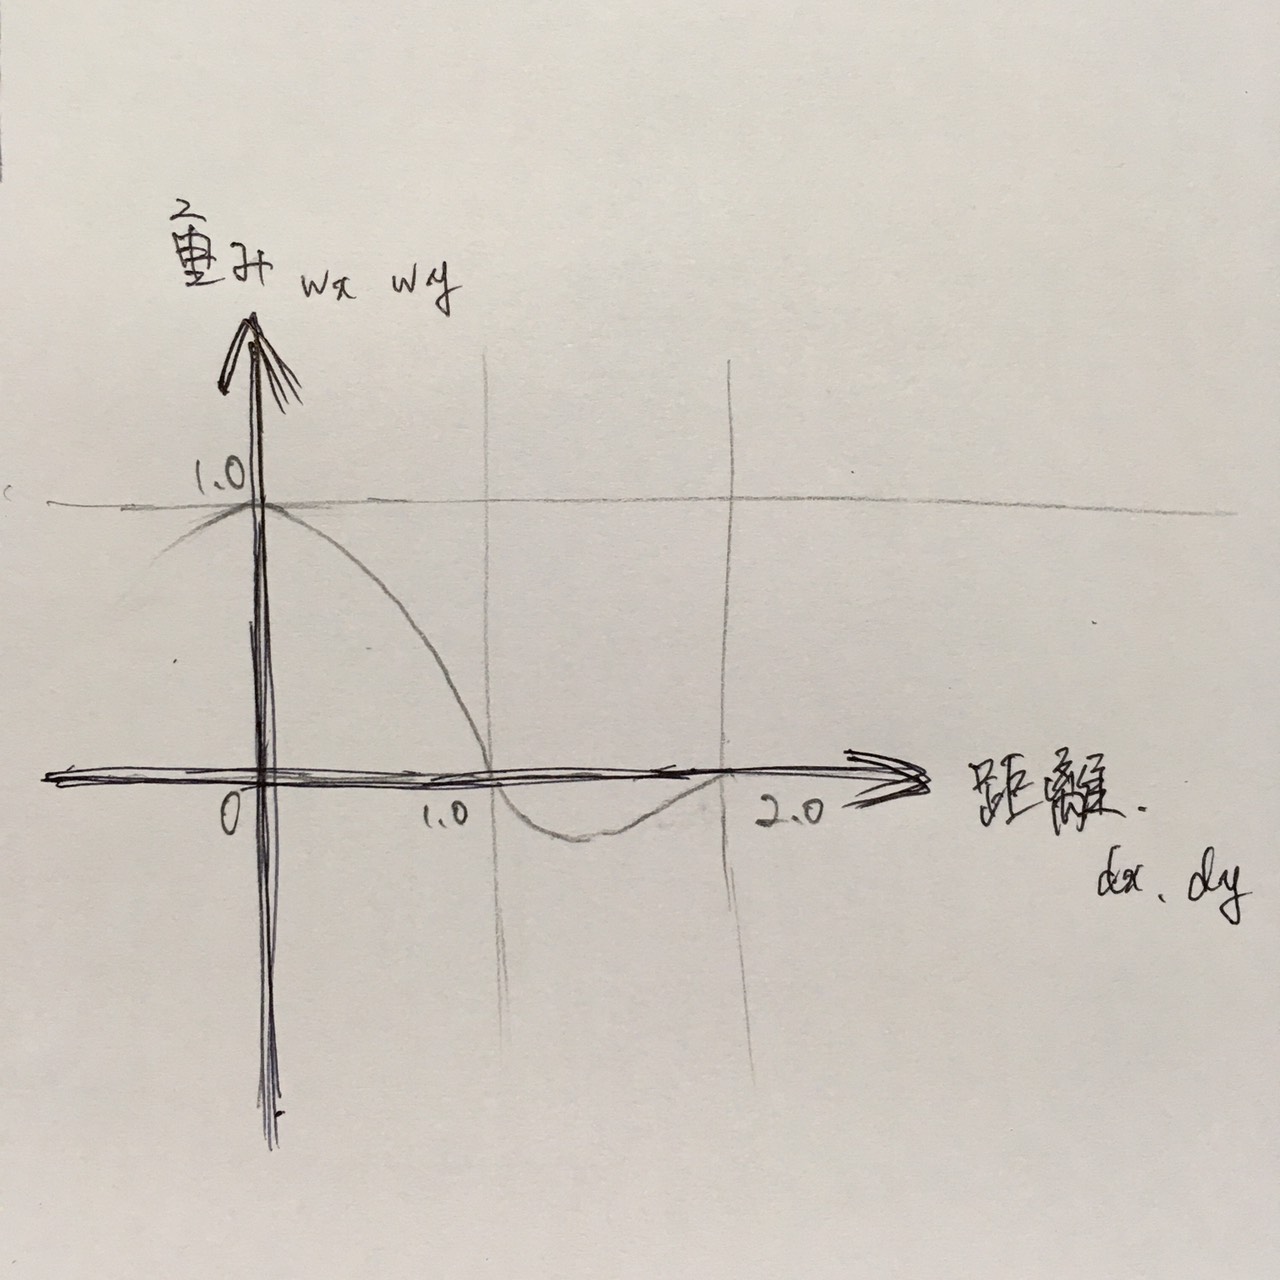 重み wx wy
1.0
0 1.0 2.0 距離.
dx. dy